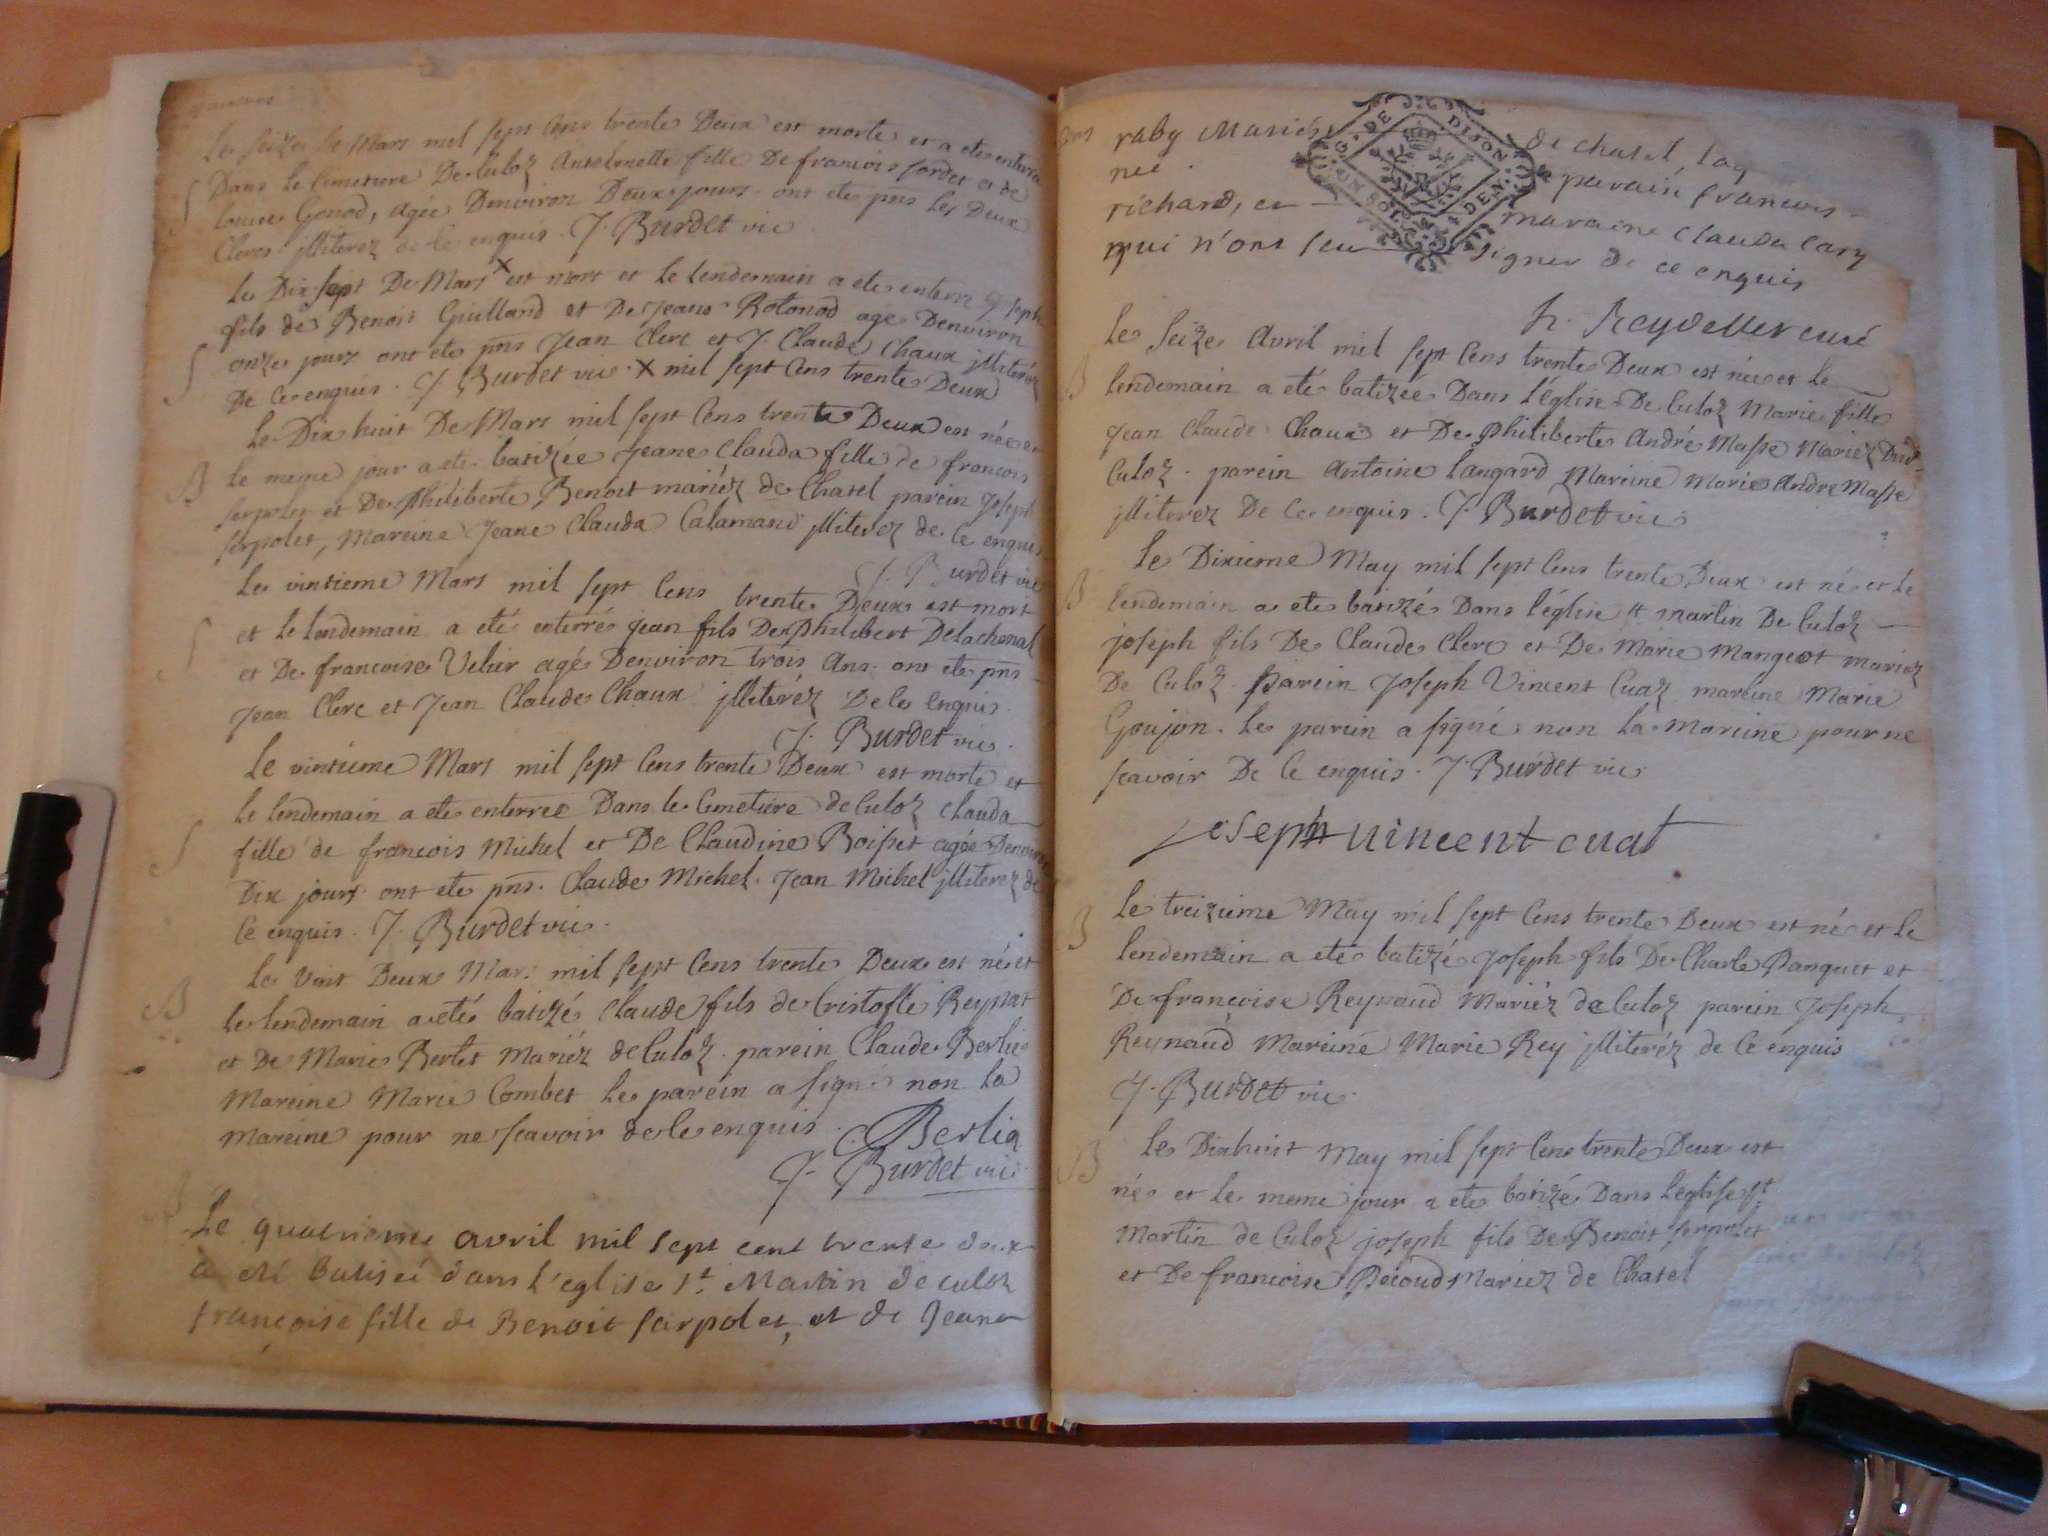 Le seize de Mars mil sept Cens trente Deux est morte et a ete enterré
Dans le Cimetiere De Culoz Antoinette fille De francois sordet et de
Louise Gonod, agée Denviron Deux jours. ont ete pns les Deux
Clercs jlliterez de ce enquis. J. Burdet vic
S
le Dix sept De Mars x est mort et le lendemain a ete enterré joseph
fils de Benoit Guilland et De jeane Botonod agé Denviron
onze jours ont ete pns Jean Clerc et J. Claude Chaux jlliteréz
De ce enquis. J. Burdet vic. x mil sept Cens trente Deux
S
Le Dix huit De Mars mil sept Cens trente Deux est née et
B le meme jour a ete batizée Jeane Clauda fille de francois
serpolet et De philiberte Benoit mariéz de Chatel parein joseph
serpolet, Mareine Jeane Clauda Calamand jlliterez de ce enquis
J. Burdet vic
Le vintieme Mars mil sept Cens trente Deux est mort
S et le lendemain a eté enterré jean fils De philibert Delachenal
et De francoise agé Denviron trois Ans. ont ete pns
Jean Clerc et Jean Claude Chaux jlliteréz De ce enquis.
J. Burdet vic.
Le vintiéme Mars mil sept Cens trente Deux est morte et
le lendemain a ete enterree Dans le Cimetiére de Culoz Clauda
S fille de francois Michel et De Claudine Boisset agée Denviron
Dix jours ont ete pns. Claude Michel. Jean Michel jlliterez de
ce enquis. J. Burdet vic.
Le vint Deux Mars mil sept Cens trente Deux est né et
B le lendemain a eté batizé Claude fils de Cristofle Reynat
et De Marie Bertet Mariéz de Culoz. parein Claude Berlie
Mareine Marie Combet Le parein a signé non la
Mareine pour ne scavoir de ce enquis. C. Berlia
J. Burdet vic
Le quatrieme avril mil sept cent trente deux
a eté batiseé dans l'eglise St. Martin de culoz
françoise fille de Benoit sarpolet, et de Jeane
raby Mariés de chatel, lad
née parain francois
richard, et maraine Clauda
qui n'ont seu signer de ce enquis
G. DE DIJON
UN SOL DEN.
h. Reydellet curé
Le seize Avril mil sept Cens trente Deux est née et le
B lendemain a eté batizée Dans l'église De Culoz Marie fille
Jean Claude Chaux et De philiberte André Masse Mariéz Dud
Culoz. parein Antoine Langard Mareine Marie André Masse
jlliterez De ce enquis. J. Burdet vic
Le Dixieme May mil sept Cens trente Deux est né et le
B lendemain a ete batizé Dans l'église st martin De Culoz
joseph fils De Claude Clerc et De Marie Mangeot mariez
De Culoz. Parein Joseph Vincent Cuaz mareine Marie
Goujon. Le parein a signé non la Mareine pour ne
scavoir De ce enquis. J. Burdet vic
joseph vincent cuat
Le treizieme May mil sept Cens trente Deux est né et le
B lendemain a eté batizé joseph fils De Charle Panquet et
De françoise Reynaud Mariéz de Culoz parein Joseph
Reynaud Mareine Marie Rey jlliteréz de ce enquis
J. Burdet vic
Le Dixhuit May mil sept Cens trente Deux est
B né et le meme jour a ete batizé Dans l'eglise St
Martin de Culoz joseph fils De Benoit serpolet
et De francoise Mariez de Chatel